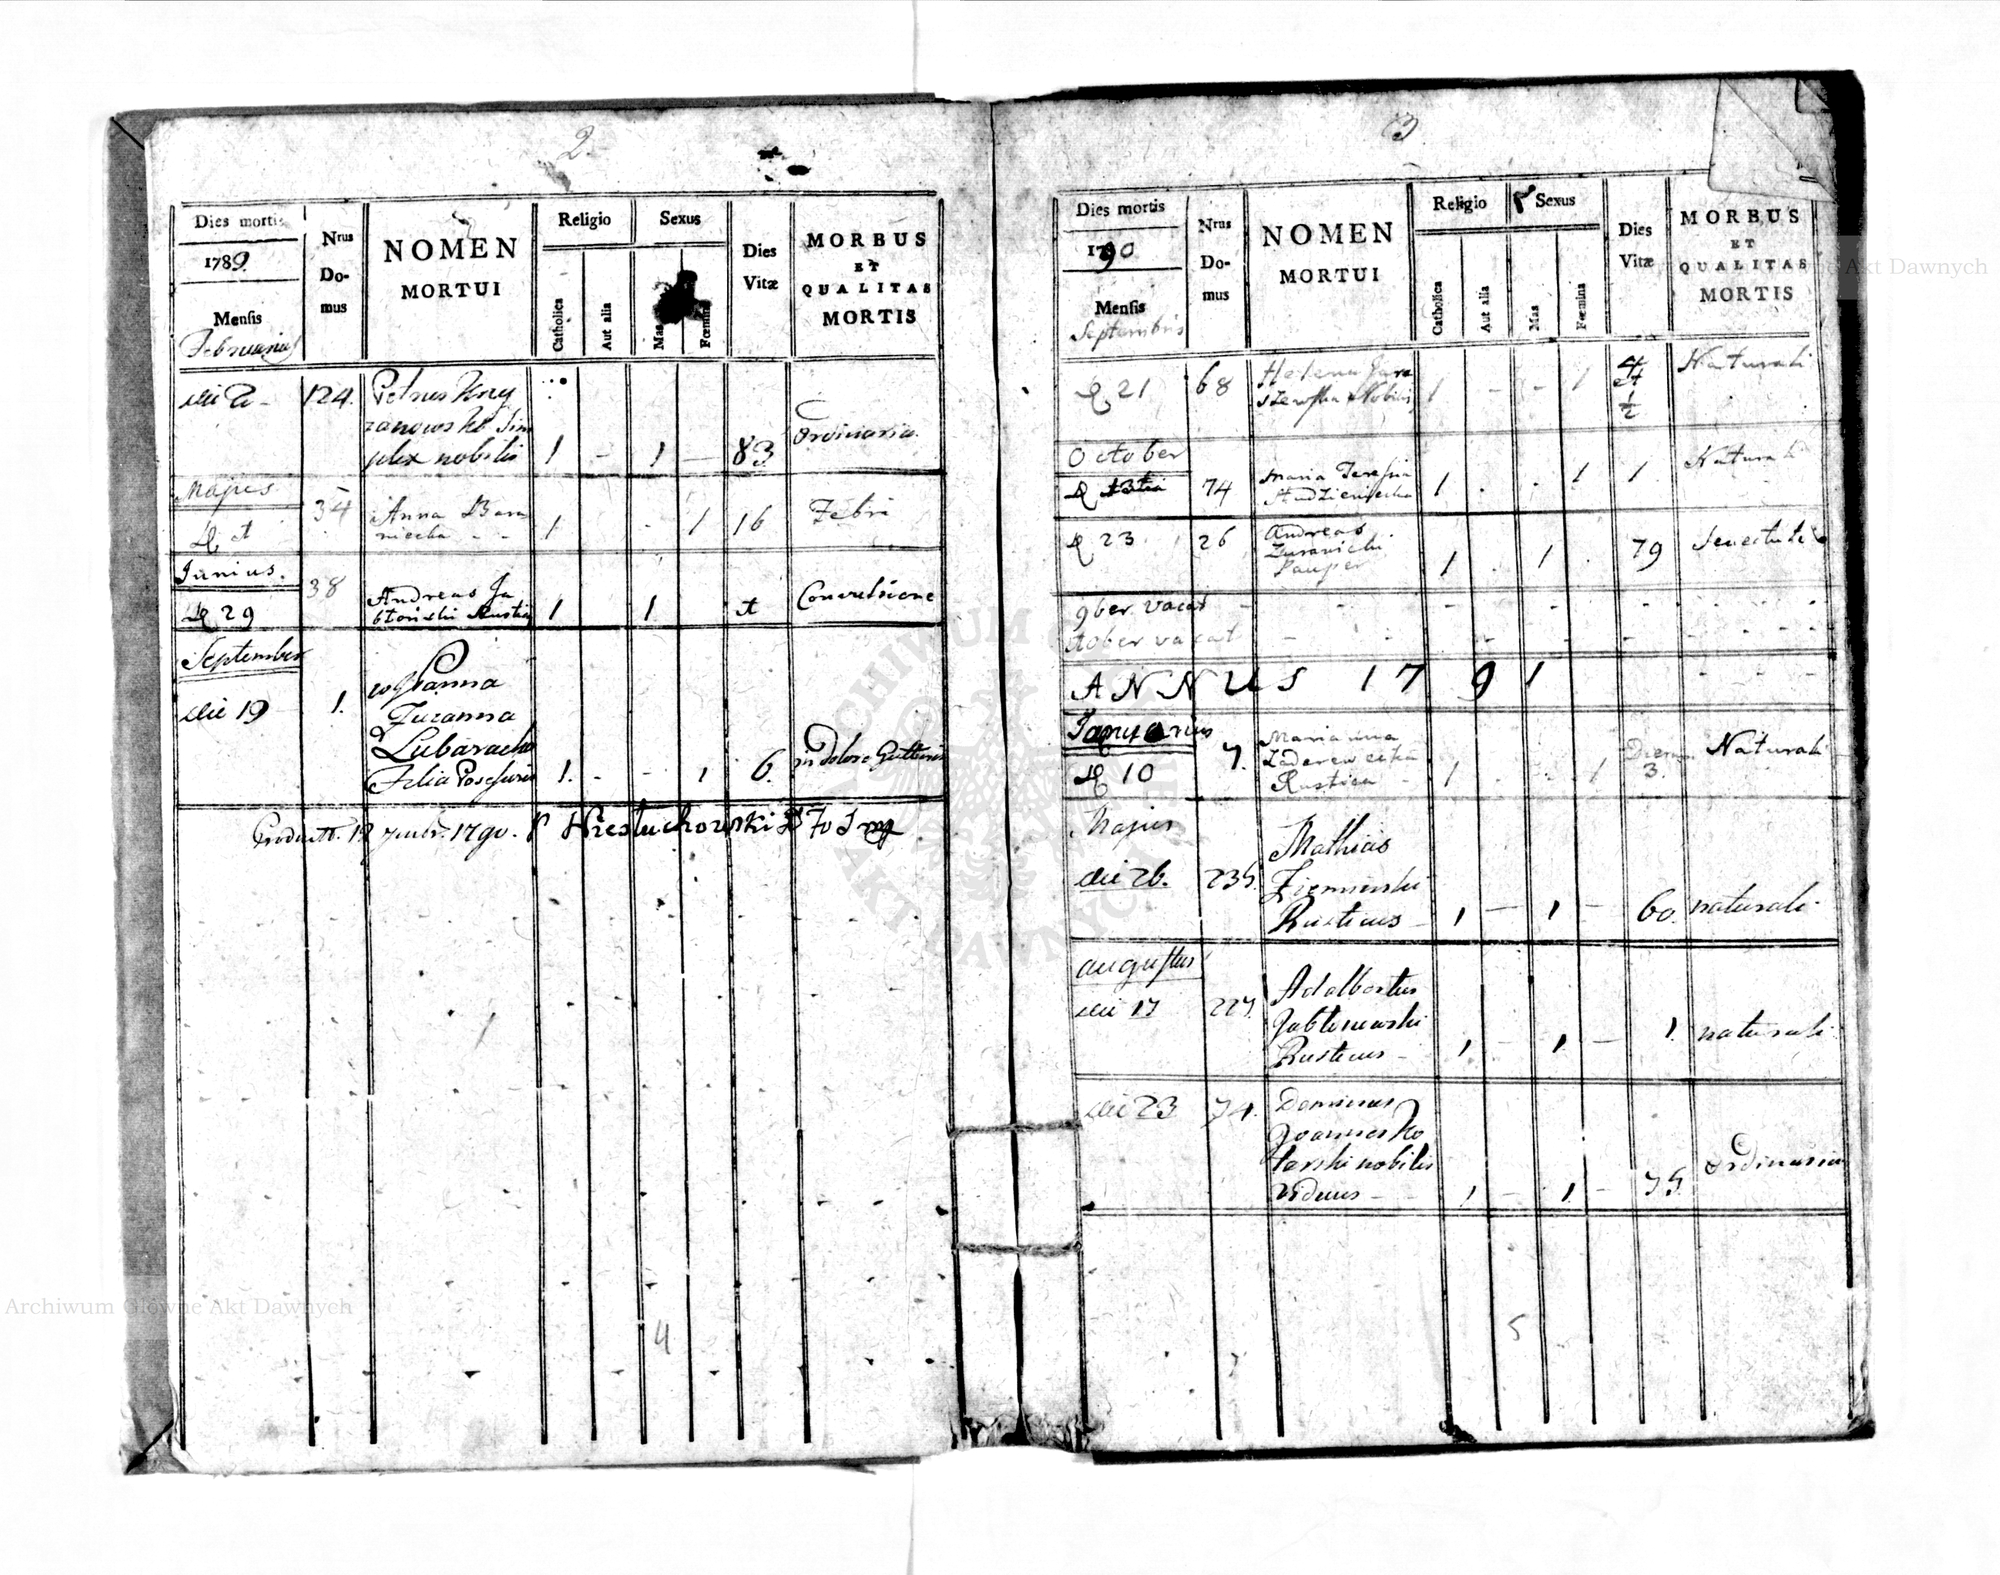 2.
Dies mortis
1789.
Mensis
Februarius
Nrus
Do-
mus
NOMEN
MORTUI
Religio
Catholica
Aut alia
Sexus
Mas
Fœmina
Dies
Vitæ
MORBUS
ET
QUALITAS
MORTIS
die 2 - 124. Petrus
zanowski Sim
plex nobilis 1 - 1 - 83 Ordinaria.
Majus
34 Anna Bara
niecka - - 1 1 16 Febri
Junius.
38 Andreas Ja
29 błoński Rustic 1 1
September
Panna
die 19 1. Zuzanna
Filia 1. - - 1 6. in dolore Gutturis
1790.
4
3
Dies mortis
1790
Mensis
Septembris
Nrus
Do-
mus
NOMEN
MORTUI
Religio
Catholica
Aut alia
Sexus
Mas
Fœmina
Dies
Vitæ
MORBUS
ET
QUALITAS
MORTIS
21 68 Helena Jara
szewska Nobilis 1 - - 1 4 et 1/2 Naturali
October
74 Maria Teresia
1 . . 1 1 Naturali
23 26 Andreas
Zurawicki
Pauper 1 . 1 . 79 Senectute
9ber vacat - - - - - - - -
vacat - - - - - - - -
ANNUS 1791
Januarius
10 7. Marianna
Zaderewecka
Rustica - 1 . . 1 Dierum 3. Naturali
Majus
die 26. 235. Mathias
Ziemienski
Rusticus - 1 - 1 - 60. naturali
augustus
die 17 227. Adalbertus
Jabłonowski
Rusticus - 1 - 1 - 1. naturali
die 23 74. Dominus
Joannes Ko
tarski nobilis
viduus - - 1 - 1. - 75. Ordinaria
5
Archiwum Główne Akt Dawnych
ARCHIWUM GŁÓWNE AKT DAWNYCH